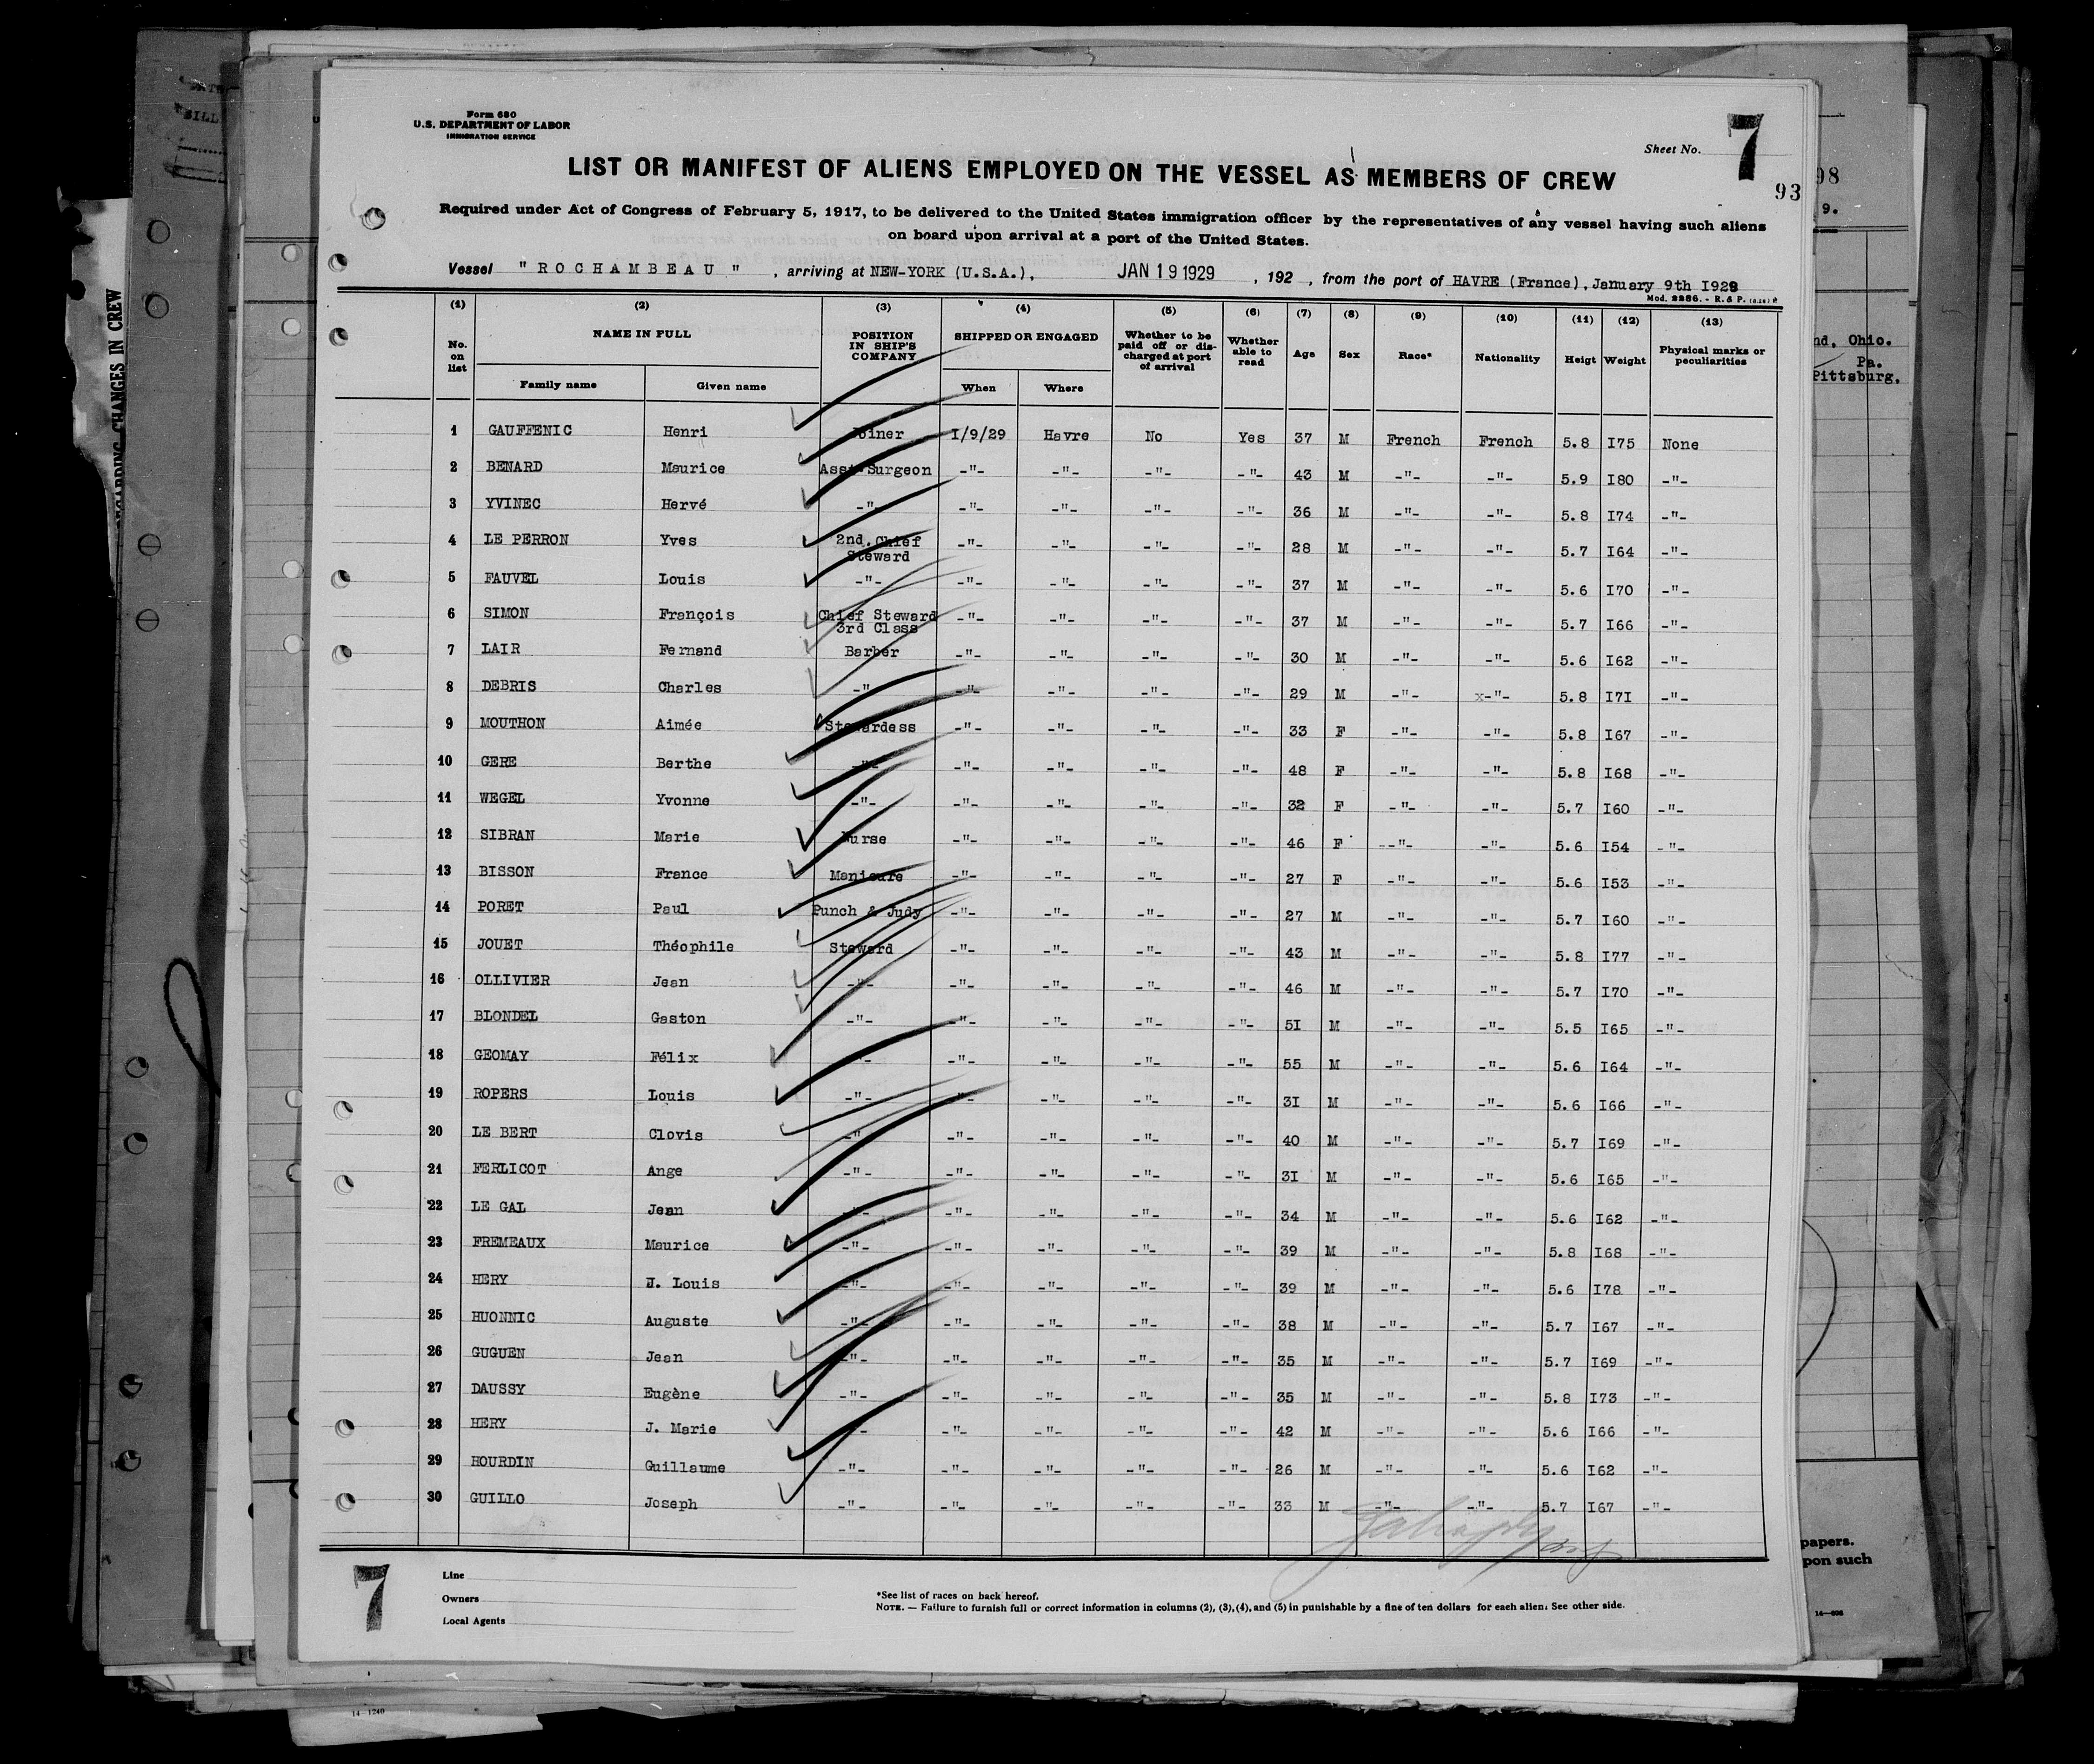 Form 680
U.S. DEPARTMENT OF LABOR
IMMIGRATION SERVICE
Sheet No. 7
93
LIST OR MANIFEST OF ALIENS EMPLOYED ON THE VESSEL AS MEMBERS OF CREW
Required under Act of Congress of February 5, 1917, to be delivered to the United States immigration officer by the representatives of any vessel having such aliens
on board upon arrival at a port of the United States.
Vessel "ROCHAMBEAU" , arriving at NEW-YORK (U.S.A.), JAN 19 1929 , 192 , from the port of HAVRE (France), January 9th I929
Mod. 2286. - R. & P.
(1) (2) (3) (4) (5) (6) (7) (8) (9) (10) (11) (12) (13)
No. on list NAME IN FULL Family name Given name POSITION IN SHIP'S COMPANY SHIPPED OR ENGAGED When Where Whether to be paid off or discharged at port of arrival Whether able to read Age Sex Race* Nationality Heigt Weight Physical marks or peculiarities
1 GAUFFENIC Henri Joiner I/9/29 Havre No Yes 37 M French French 5.8 I75 None
2 BENARD Maurice Asst Surgeon -"- -"- -"- -"- 43 M -"- -"- 5.9 I80 -"-
3 YVINEC Hervé -"- -"- -"- -"- -"- 36 M -"- -"- 5.8 I74 -"-
4 LE PERRON Yves 2nd. Chief Steward -"- -"- -"- -"- 28 M -"- -"- 5.7 I64 -"-
5 FAUVEL Louis -"- -"- -"- -"- -"- 37 M -"- -"- 5.6 I70 -"-
6 SIMON François Chief Steward 3rd Class -"- -"- -"- -"- 37 M -"- -"- 5.7 I66 -"-
7 LAIR Fernand Barber -"- -"- -"- -"- 30 M -"- -"- 5.6 I62 -"-
8 DEBRIS Charles -"- -"- -"- -"- -"- 29 M -"- x-"- 5.8 I7I -"-
9 MOUTHON Aimée Stewardess -"- -"- -"- -"- 33 F -"- -"- 5.8 I67 -"-
10 GERE Berthe -"- -"- -"- -"- -"- 48 F -"- -"- 5.8 I68 -"-
11 WEGEL Yvonne -"- -"- -"- -"- -"- 32 F -"- -"- 5.7 I60 -"-
12 SIBRAN Marie Nurse -"- -"- -"- -"- 46 F -"- -"- 5.6 I54 -"-
13 BISSON France Manicure -"- -"- -"- -"- 27 F -"- -"- 5.6 I53 -"-
14 PORET Paul Punch & Judy -"- -"- -"- -"- 27 M -"- -"- 5.7 I60 -"-
15 JOUET Théophile Steward -"- -"- -"- -"- 43 M -"- -"- 5.8 I77 -"-
16 OLLIVIER Jean -"- -"- -"- -"- -"- 46 M -"- -"- 5.7 I70 -"-
17 BLONDEL Gaston -"- -"- -"- -"- -"- 5I M -"- -"- 5.5 I65 -"-
18 GEOMAY Félix -"- -"- -"- -"- -"- 55 M -"- -"- 5.6 I64 -"-
19 ROPERS Louis -"- -"- -"- -"- -"- 3I M -"- -"- 5.6 I66 -"-
20 LE BERT Clovis -"- -"- -"- -"- -"- 40 M -"- -"- 5.7 I69 -"-
21 FERLICOT Ange -"- -"- -"- -"- -"- 3I M -"- -"- 5.6 I65 -"-
22 LE GAL Jean -"- -"- -"- -"- -"- 34 M -"- -"- 5.6 I62 -"-
23 FREMEAUX Maurice -"- -"- -"- -"- -"- 39 M -"- -"- 5.8 I68 -"-
24 HERY J. Louis -"- -"- -"- -"- -"- 39 M -"- -"- 5.6 I78 -"-
25 HUONNIC Auguste -"- -"- -"- -"- -"- 38 M -"- -"- 5.7 I67 -"-
26 GUGUEN Jean -"- -"- -"- -"- -"- 35 M -"- -"- 5.7 I69 -"-
27 DAUSSY Eugène -"- -"- -"- -"- -"- 35 M -"- -"- 5.8 I73 -"-
28 HERY J. Marie -"- -"- -"- -"- -"- 42 M -"- -"- 5.6 I66 -"-
29 HOURDIN Guillaume -"- -"- -"- -"- -"- 26 M -"- -"- 5.6 I62 -"-
30 GUILLO Joseph -"- -"- -"- -"- -"- 33 M -"- -"- 5.7 I67 -"-
7
Line
Owners
Local Agents
*See list of races on back hereof.
NOTE. — Failure to furnish full or correct information in columns (2), (3), (4), and (5) in punishable by a fine of ten dollars for each alien. See other side.
14-1240
98
9.
nd, Ohio.
Pa.
Pittsburg.
papers.
pon such
REGARDING CHANGES IN CREW